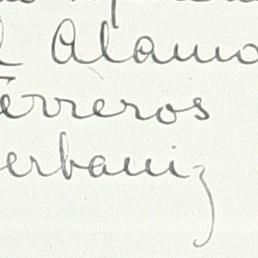 l Alamo
Terreros
erbaniz